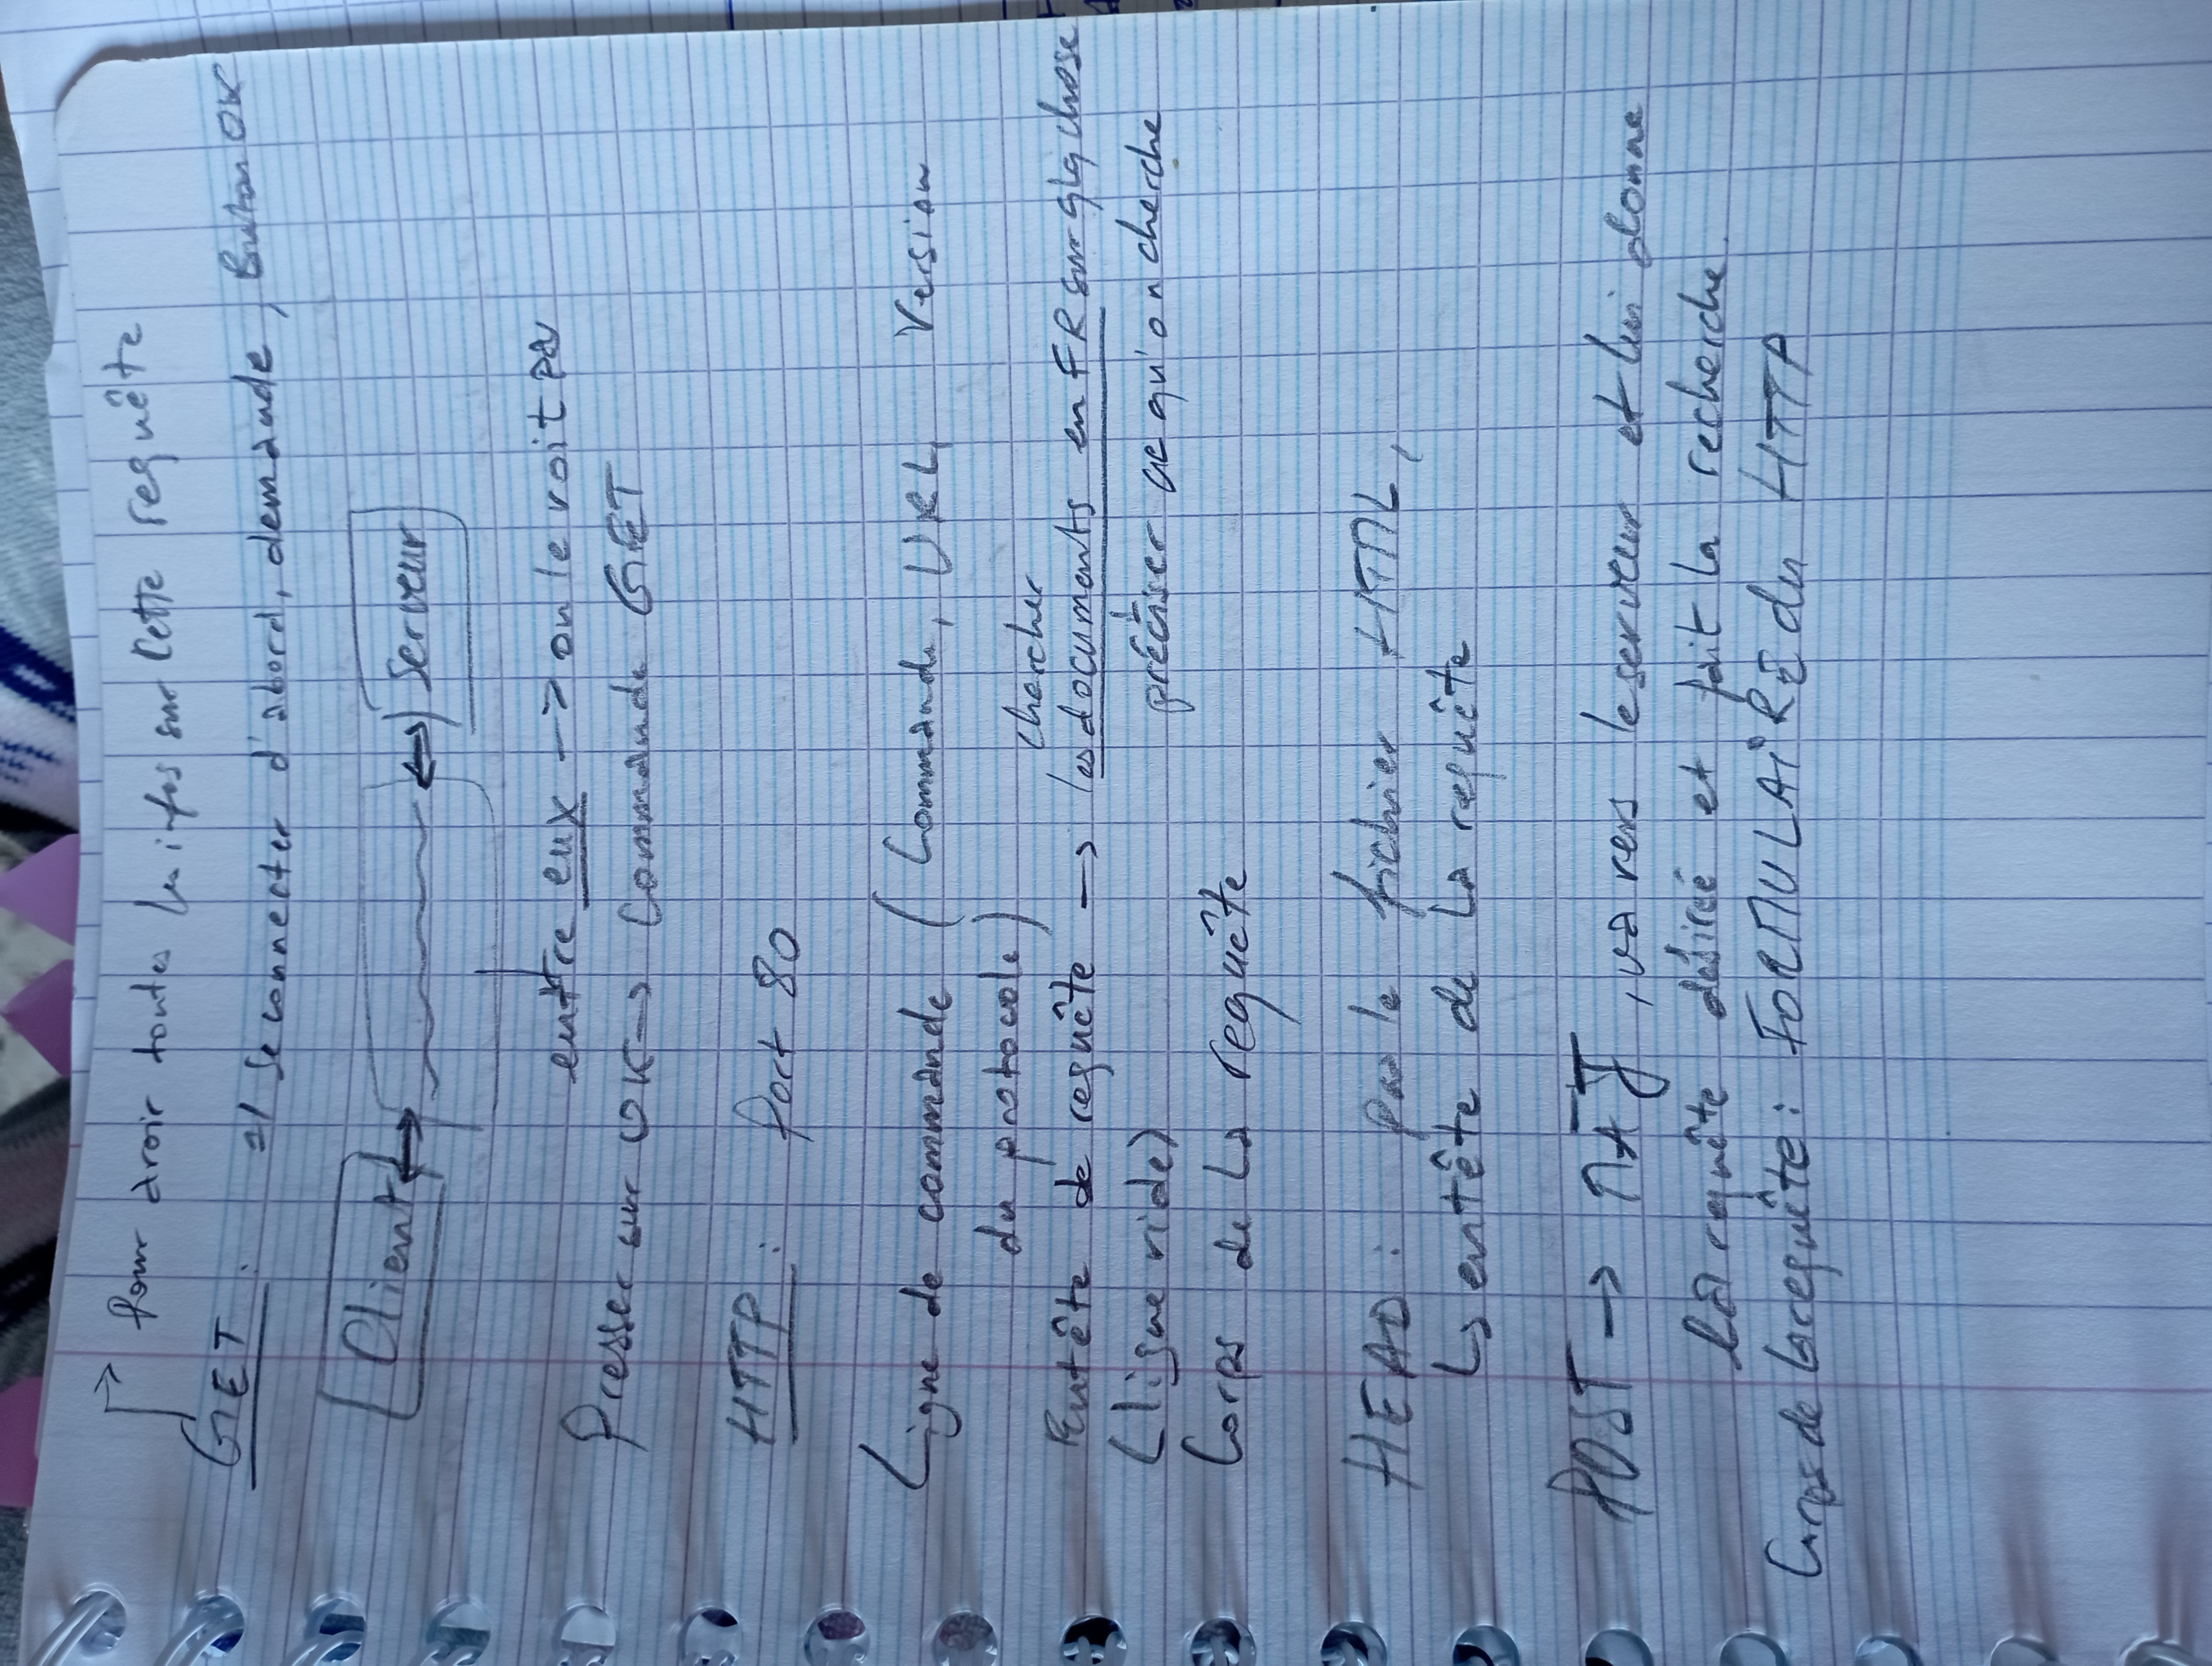 Pour avoir toutes les infos sur cette requête
GET : => Se connecter d'abord, demande, Buton OK
Client Serveur
entre eux -> on le voit pas
Presser sur OK -> Commande GET
HTTP : Port 80
Ligne de commande (Commande, URL, Version
du protocole)
chercher
Entête de requête -> les documents en FR sur qlq chose
(ligne vide) préciser ce qu'on cherche
Corps de la requête
HEAD : pas le fichier HTML,
↳ entête de la requête
POST -> MAJ, va vers le serveur et lui donne
la requête désirée et fait la recherche.
Corps de la requête : FORMULAiRE du HTTP